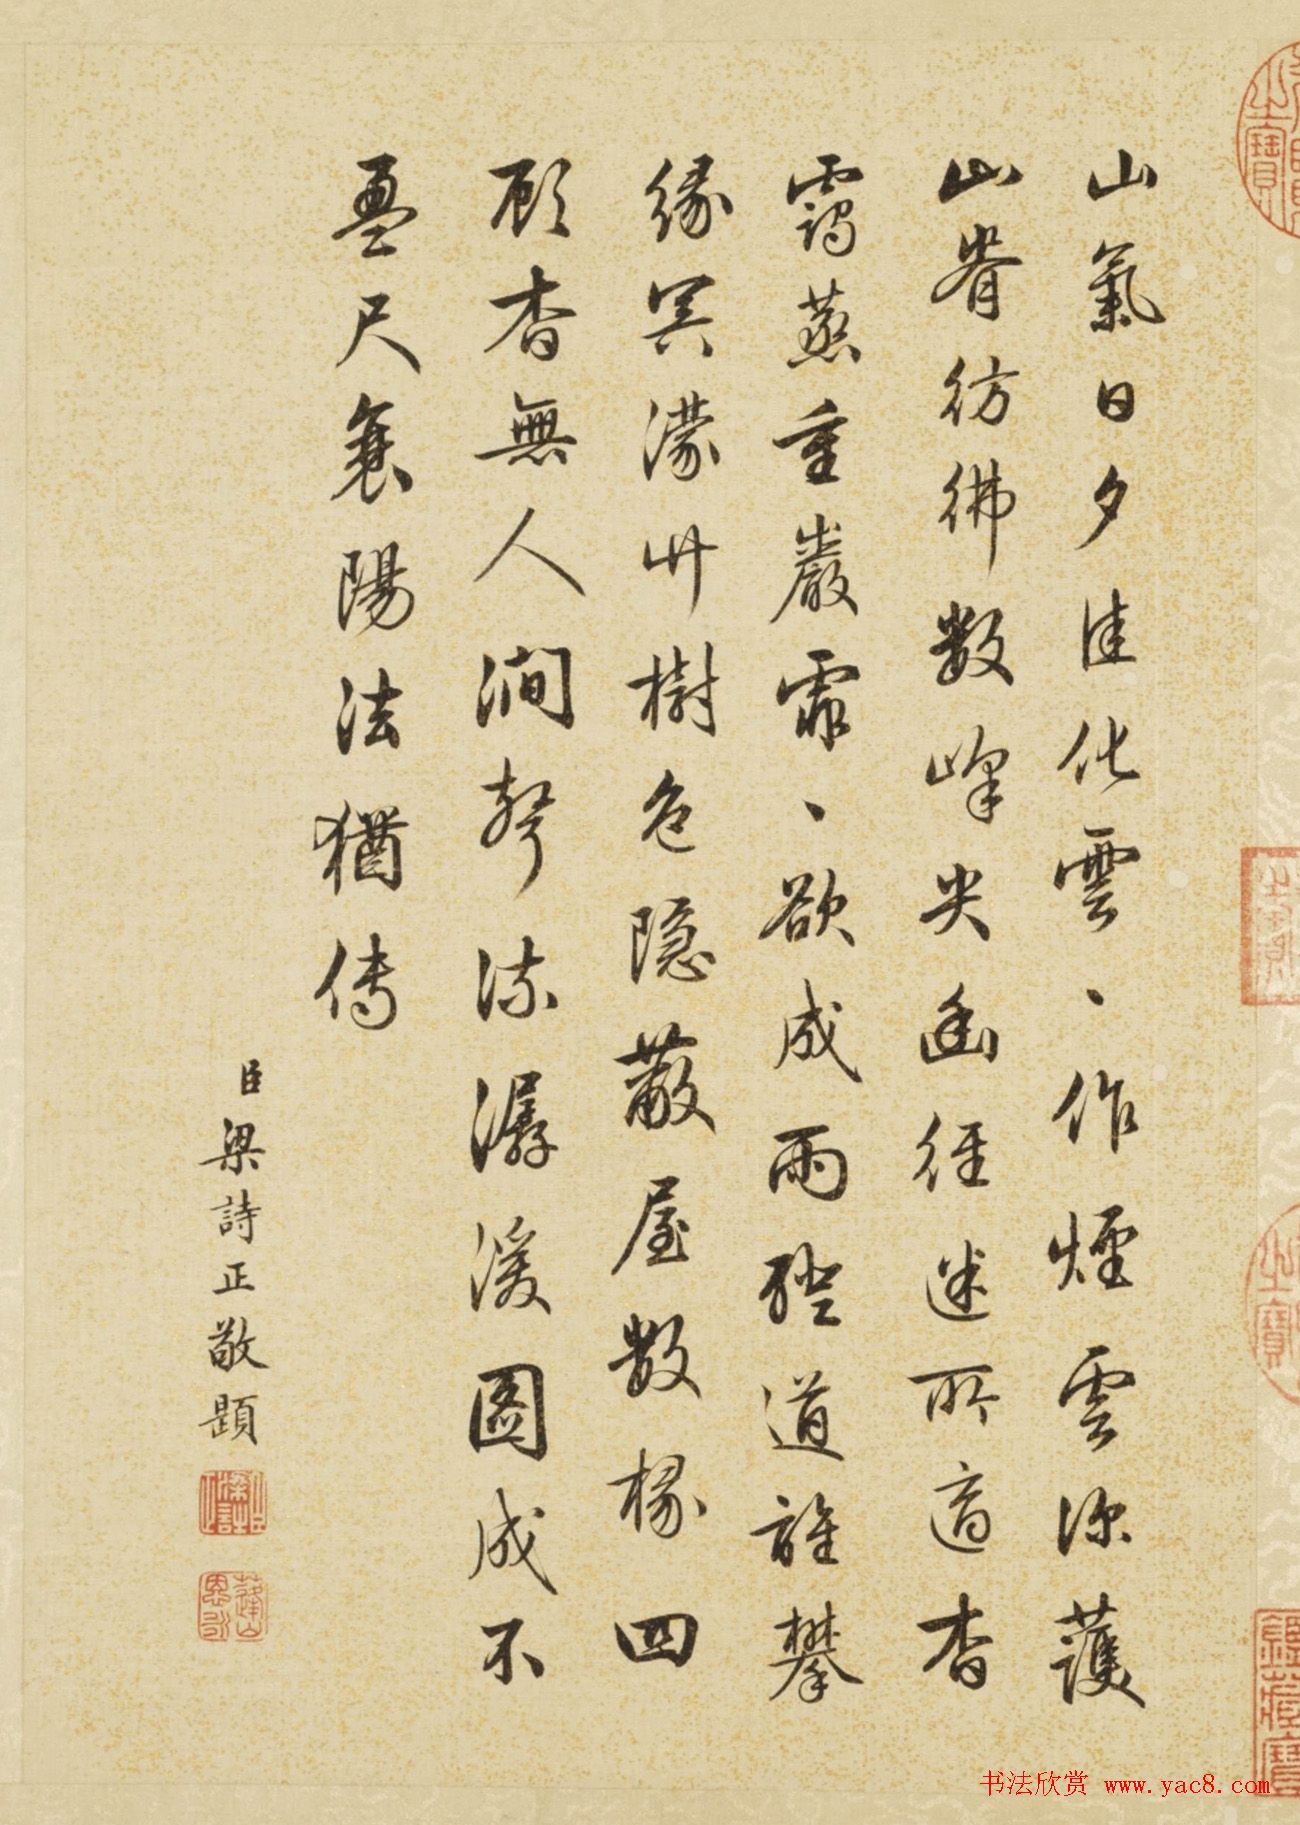 山氣日夕佳化雲、作煙雲深護
山脊彷彿數峰尖幽徑迷所適杳
靄蒸重巖霏、欲成雨磴道誰攀
緣冥濛艸樹色隱蔽屋數椽四
顧杳無人澗聲流潺湲圖成不
盈尺襄陽法猶傳
臣梁詩正敬題
书法欣赏 www.yac8.com